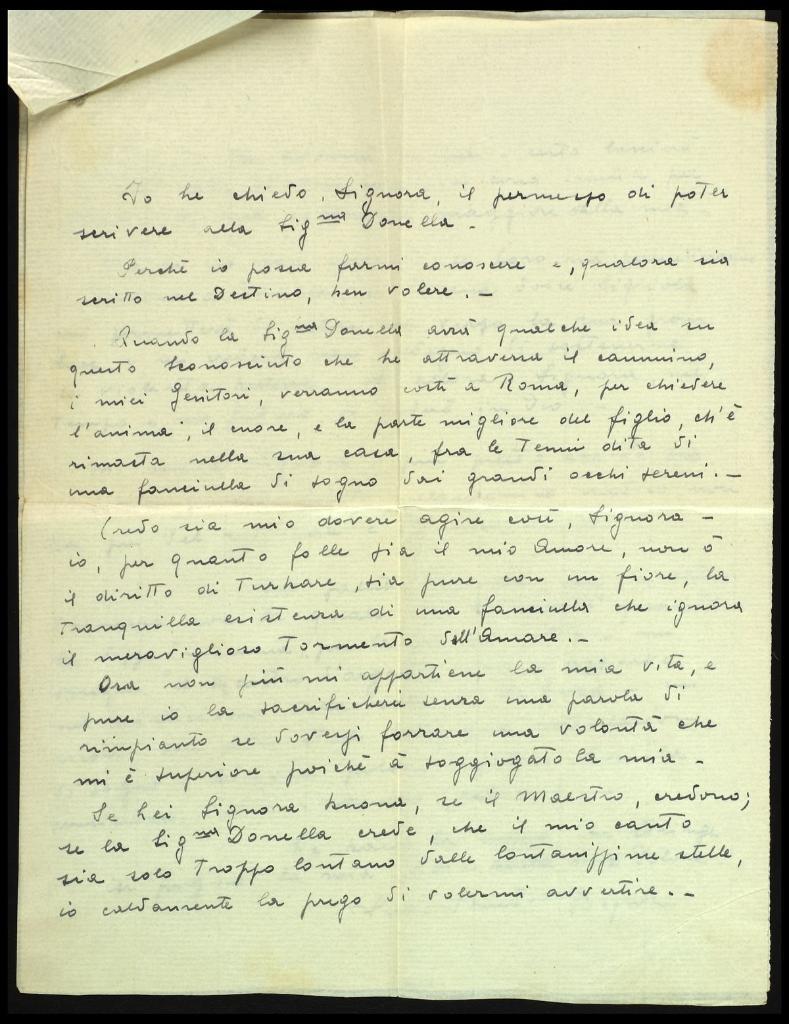 Io Le chiedo, Signora, il permesso di poter
scrivere alla Sigⁿᵃ Donella.
Perchè io possa farmi conoscere e, qualora sia
scritto nel Destino, ben volere. –
Quando la Sigⁿᵃ Donella avrà qualche idea su
questo sconosciuto che Le attraversa il cammino,
i miei Genitori, verranno costì a Roma, per chiedere
l'anima, il cuore, e la parte migliore del figlio, ch'è
rimasta nella sua casa, fra le Tenui dita di
una fanciulla di sogno dai grandi occhi sereni. –
Credo sia mio dovere agire così, Signora –
io, per quanto folle sia il mio Amore, non ò
il diritto di Turbare, sia pure con un fiore, la
Tranquilla esistenza di una fanciulla che ignora
il meraviglioso Tormento dell'Amare. –
Ora non più mi appartiene la mia vita, e
pure io la sacrificherei senza una parola di
rimpianto se dovessi forzare una volontà che
mi è superiore poichè à soggiogato la mia –
Se Lei Signora buona, se il Maestro, credono;
se la Sigⁿᵃ Donella crede, che il mio canto
sia solo Troppo lontano dalle lontanissime stelle,
io caldamente La prego di volermi avvertire. –